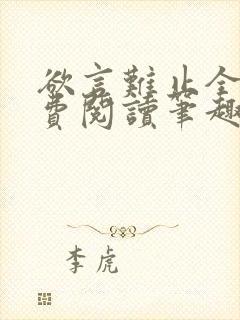 欲言難止全
費閱讀筆趣
李虎